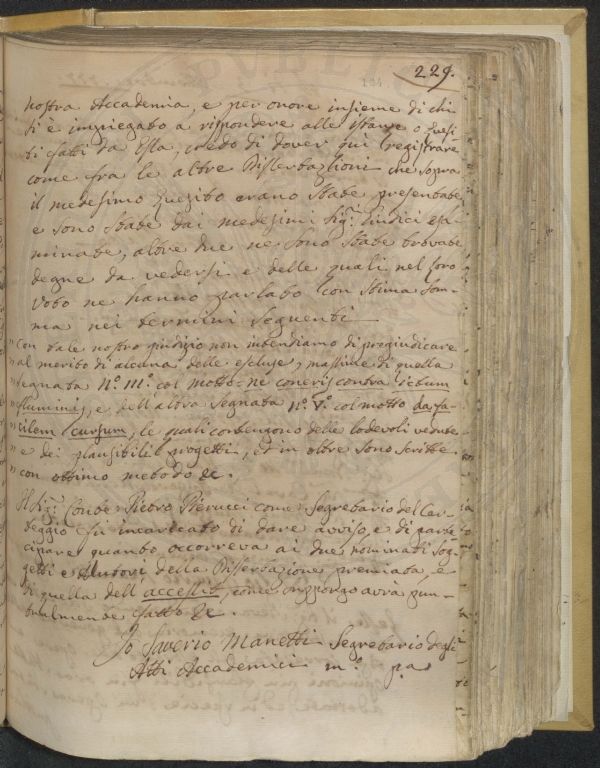 229.
194
nostra Accademia, e per onore insieme di chi
si è impiegato a rispondere alle istanze o quesi
ti fatti da Essa, credo di dover qui registrare
come fra le altre Dissertazioni che sopra
il medesimo Quesito erano state presentate
e sono state dai medesimi Sig.ri Giudici esa-
minate, altre due ne sono state trovate
degne da vedersi e delle quali nel loro
Voto ne hanno parlato con stima som-
ma nei termini seguenti
„ Con tale nostro giudizio non intendiamo di pregiudicare
„ al merito di alcuna delle escluse, massime di quella
„ segnata N.o III.o col motto: ne coneris contra ictum
„ fluminis, e dell'altra segnata N.o V.o col motto da fa-
„ cilem cursum, le quali contengono delle lodevoli vedute
„ e dei plausibili progetti, ed in oltre sono scritte
„ con ottimo metodo &c.
Il Sig.r Conte Pietro Pierucci come Segretario del Car-
teggio fù incaricato di dare avviso, e di parte
cipare quanto occorreva ai due nominati Sog-
getti e Autori della Dissertazione premiata, e
di quella dell' accessit, come suppongo avrà pun-
tualmente fatto &c.
Io Saverio Manetti Segretario degli
Atti Accademici m.o p.a